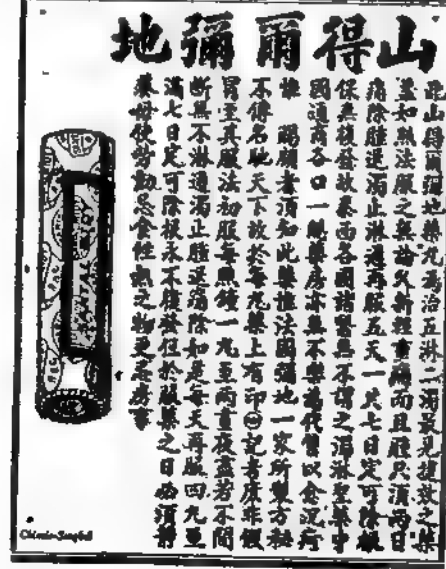 地彌爾得山
此山得爾彌地藥丸為治五淋二濁最見捷效之藥
並如照法服之無論久新輕重兩而且雖只須兩日
痛除腫退濁止淋通再服五天一共七日定可除根
保無復發故泰西各國諸醫無不謂之濁淋聖藥中
國通商各口一概藥房亦無不樂為代售以余況行
惟 賜顧者須知此藥惟法國彌地一家所製方秘
不傳名馳天下故於每丸藥上有印㊀記者庶非假
冒至其服法初服每點鐘一丸至兩晝夜盡若不間
斷無不淋通濁止腫退痛除如是每天再服四丸至
滿七日定可除根永不復發但於服藥之日必須靜
養毋使勞動忌食性熱之物更忌房事